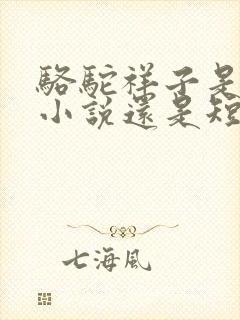 駱駝祥子是
小説還是短
七海風